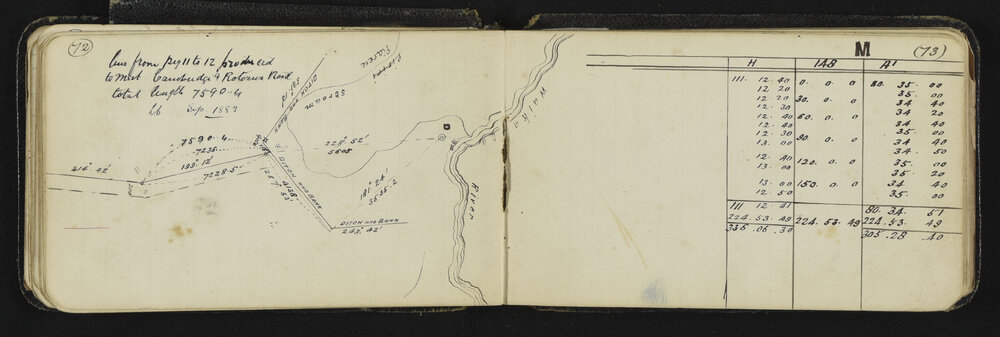 (72)
line from peg 11 to 12 produced
to meet Cambridge & Rotorua Road
total length 7590.4
Sep. 1883
DITCH AND BANK
Stream
7590.4
7235
193° 12'
7228.5
214° 42'
4138
257° 53'
DITCH AND BANK
228° 52'
5605
D
181° 24'
3535.2
DITCH AND BANK
243° 42'
River
M
(73)
H 148 A1
111. 12. 40 0. 0. 0 80. 35. 00
12. 20 35. 00
12. 20 30. 0. 0 34 40
12. 30 34. 20
12. 40 60. 0. 0 34. 40
12. 40 35. 00
12. 30 90. 0. 0 34 40
13. 00 34. 50
12. 40 120. 0. 0 35. 00
13. 00 35. 20
13. 00 150. 0. 0 34. 40
12. 50 35. 00
111 12. 41 80. 34. 51
224. 53. 49 224. 53. 49 224. 53. 49
336. 06. 30 305. 28. 40